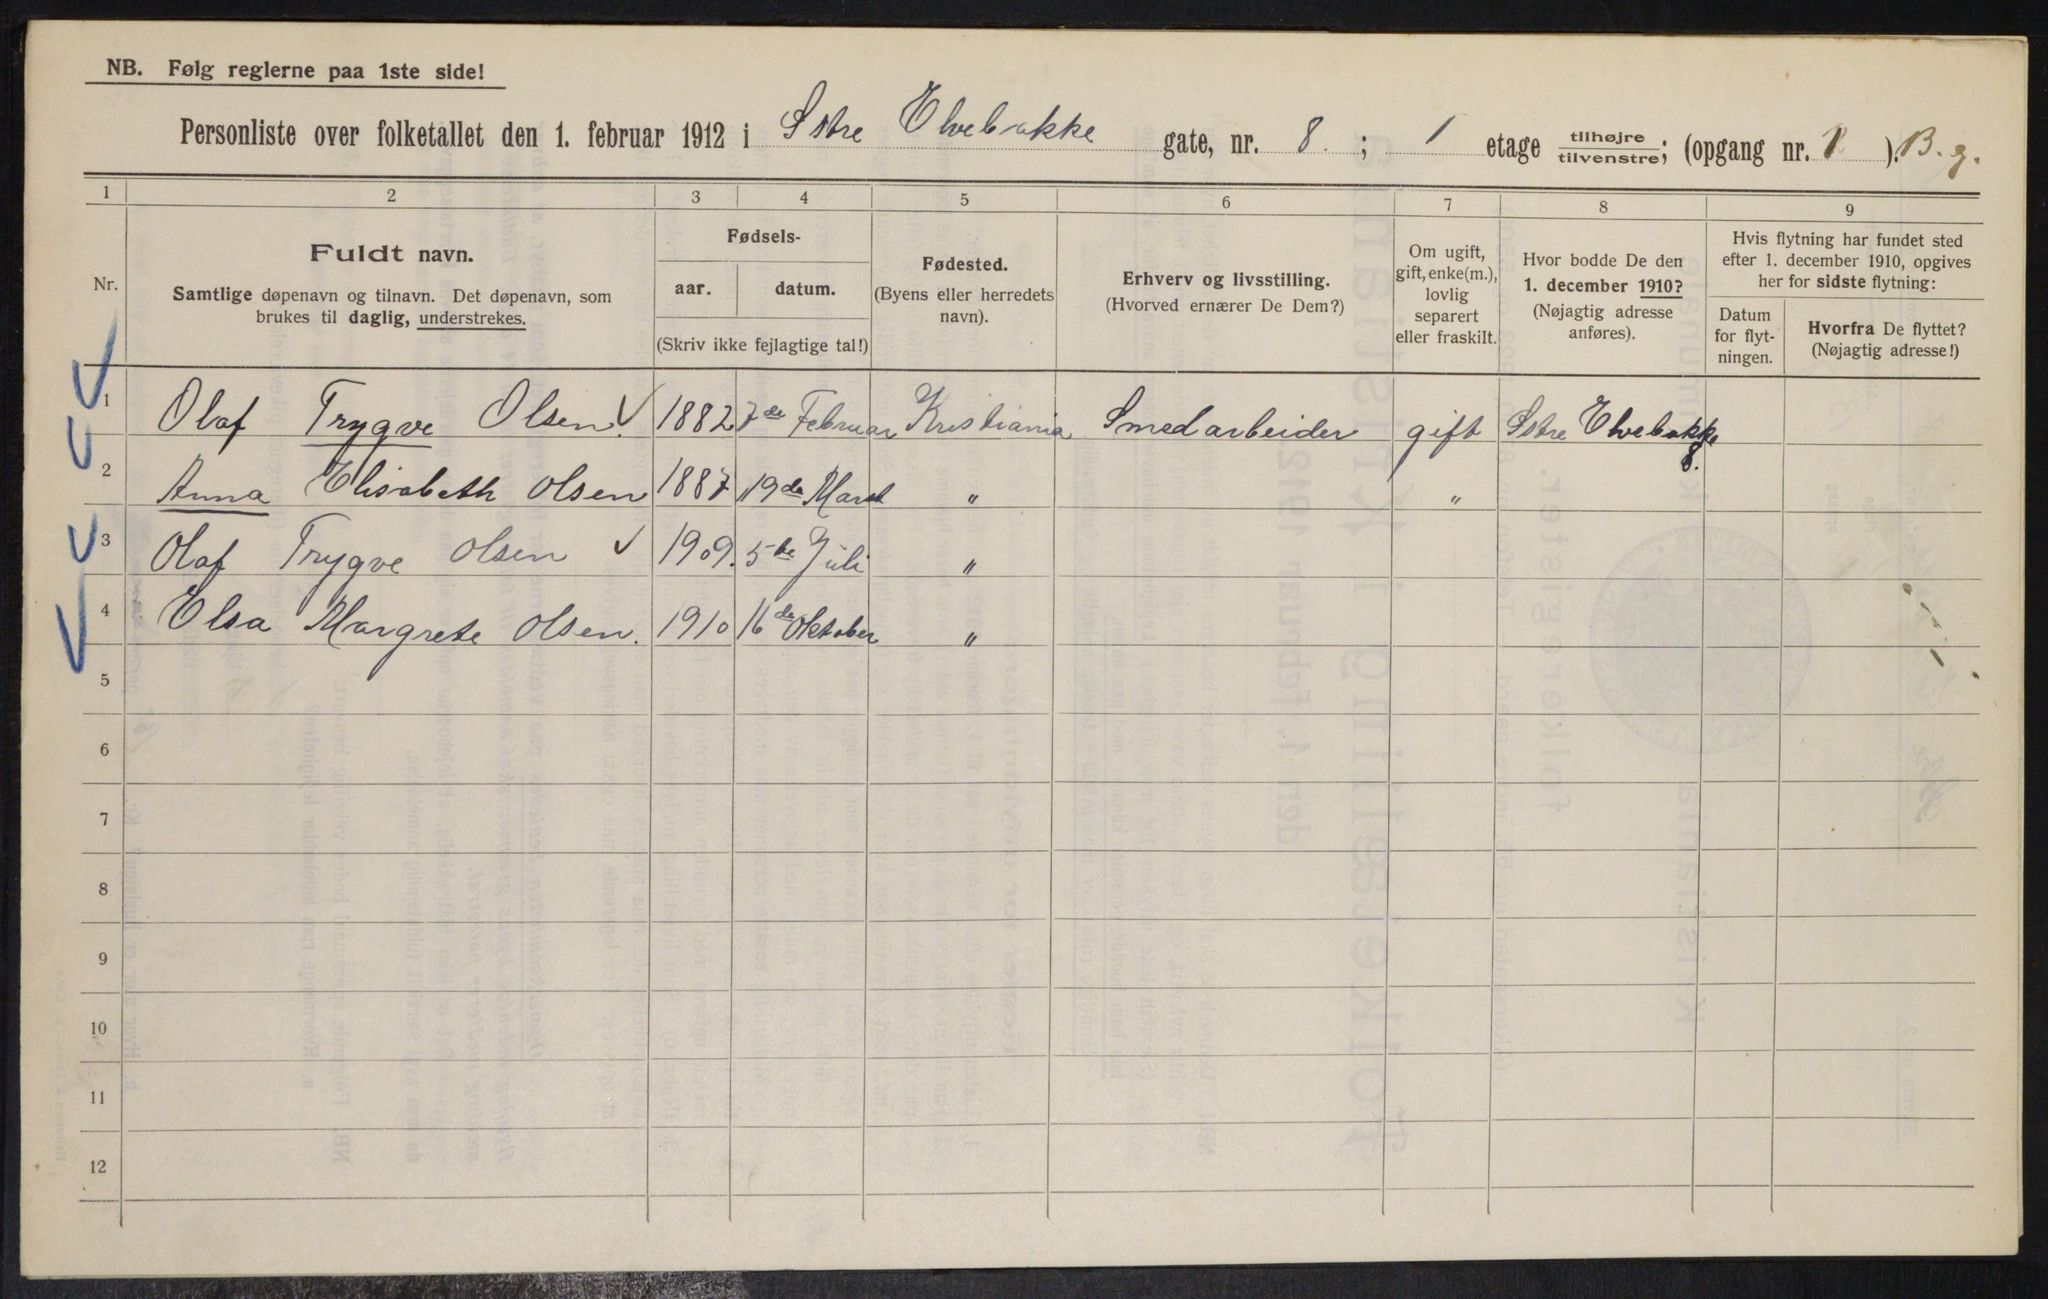 NB. Følg reglerne paa 1ste side!
Personliste over folketallet den 1. februar 1912 i Østre Elvebakke gate, nr. 8. ; 1 etage tilhøjre/tilvenstre; (opgang nr. 1 ). B. g.
1 2 3 4 5 6 7 8 9
Nr.
Fuldt navn.
Samtlige døpenavn og tilnavn. Det døpenavn, som
brukes til daglig, understrekes.
Fødsels-
aar. datum.
(Skriv ikke fejlagtige tal!)
Fødested.
(Byens eller herredets
navn).
Erhverv og livsstilling.
(Hvorved ernærer De Dem?)
Om ugift,
gift, enke(m.),
lovlig
separert
eller fraskilt.
Hvor bodde De den
1. december 1910?
(Nøjagtig adresse
anføres).
Hvis flytning har fundet sted
efter 1. december 1910, opgives
her for sidste flytning:
Datum
for flyt-
ningen.
Hvorfra De flyttet?
(Nøjagtig adresse!)
1 Olaf Trygve Olsen. 1882 7de Februar Kristiania Smedarbeider gift Østre Elvebakke 8.
2 Anna Elisabeth Olsen 1887 19de Marst " "
3 Olaf Trygve Olsen 1909. 5te Juli "
4 Elsa Margrete Olsen. 1910 16de Oktober "
5
6
7
8
9
10
11
12